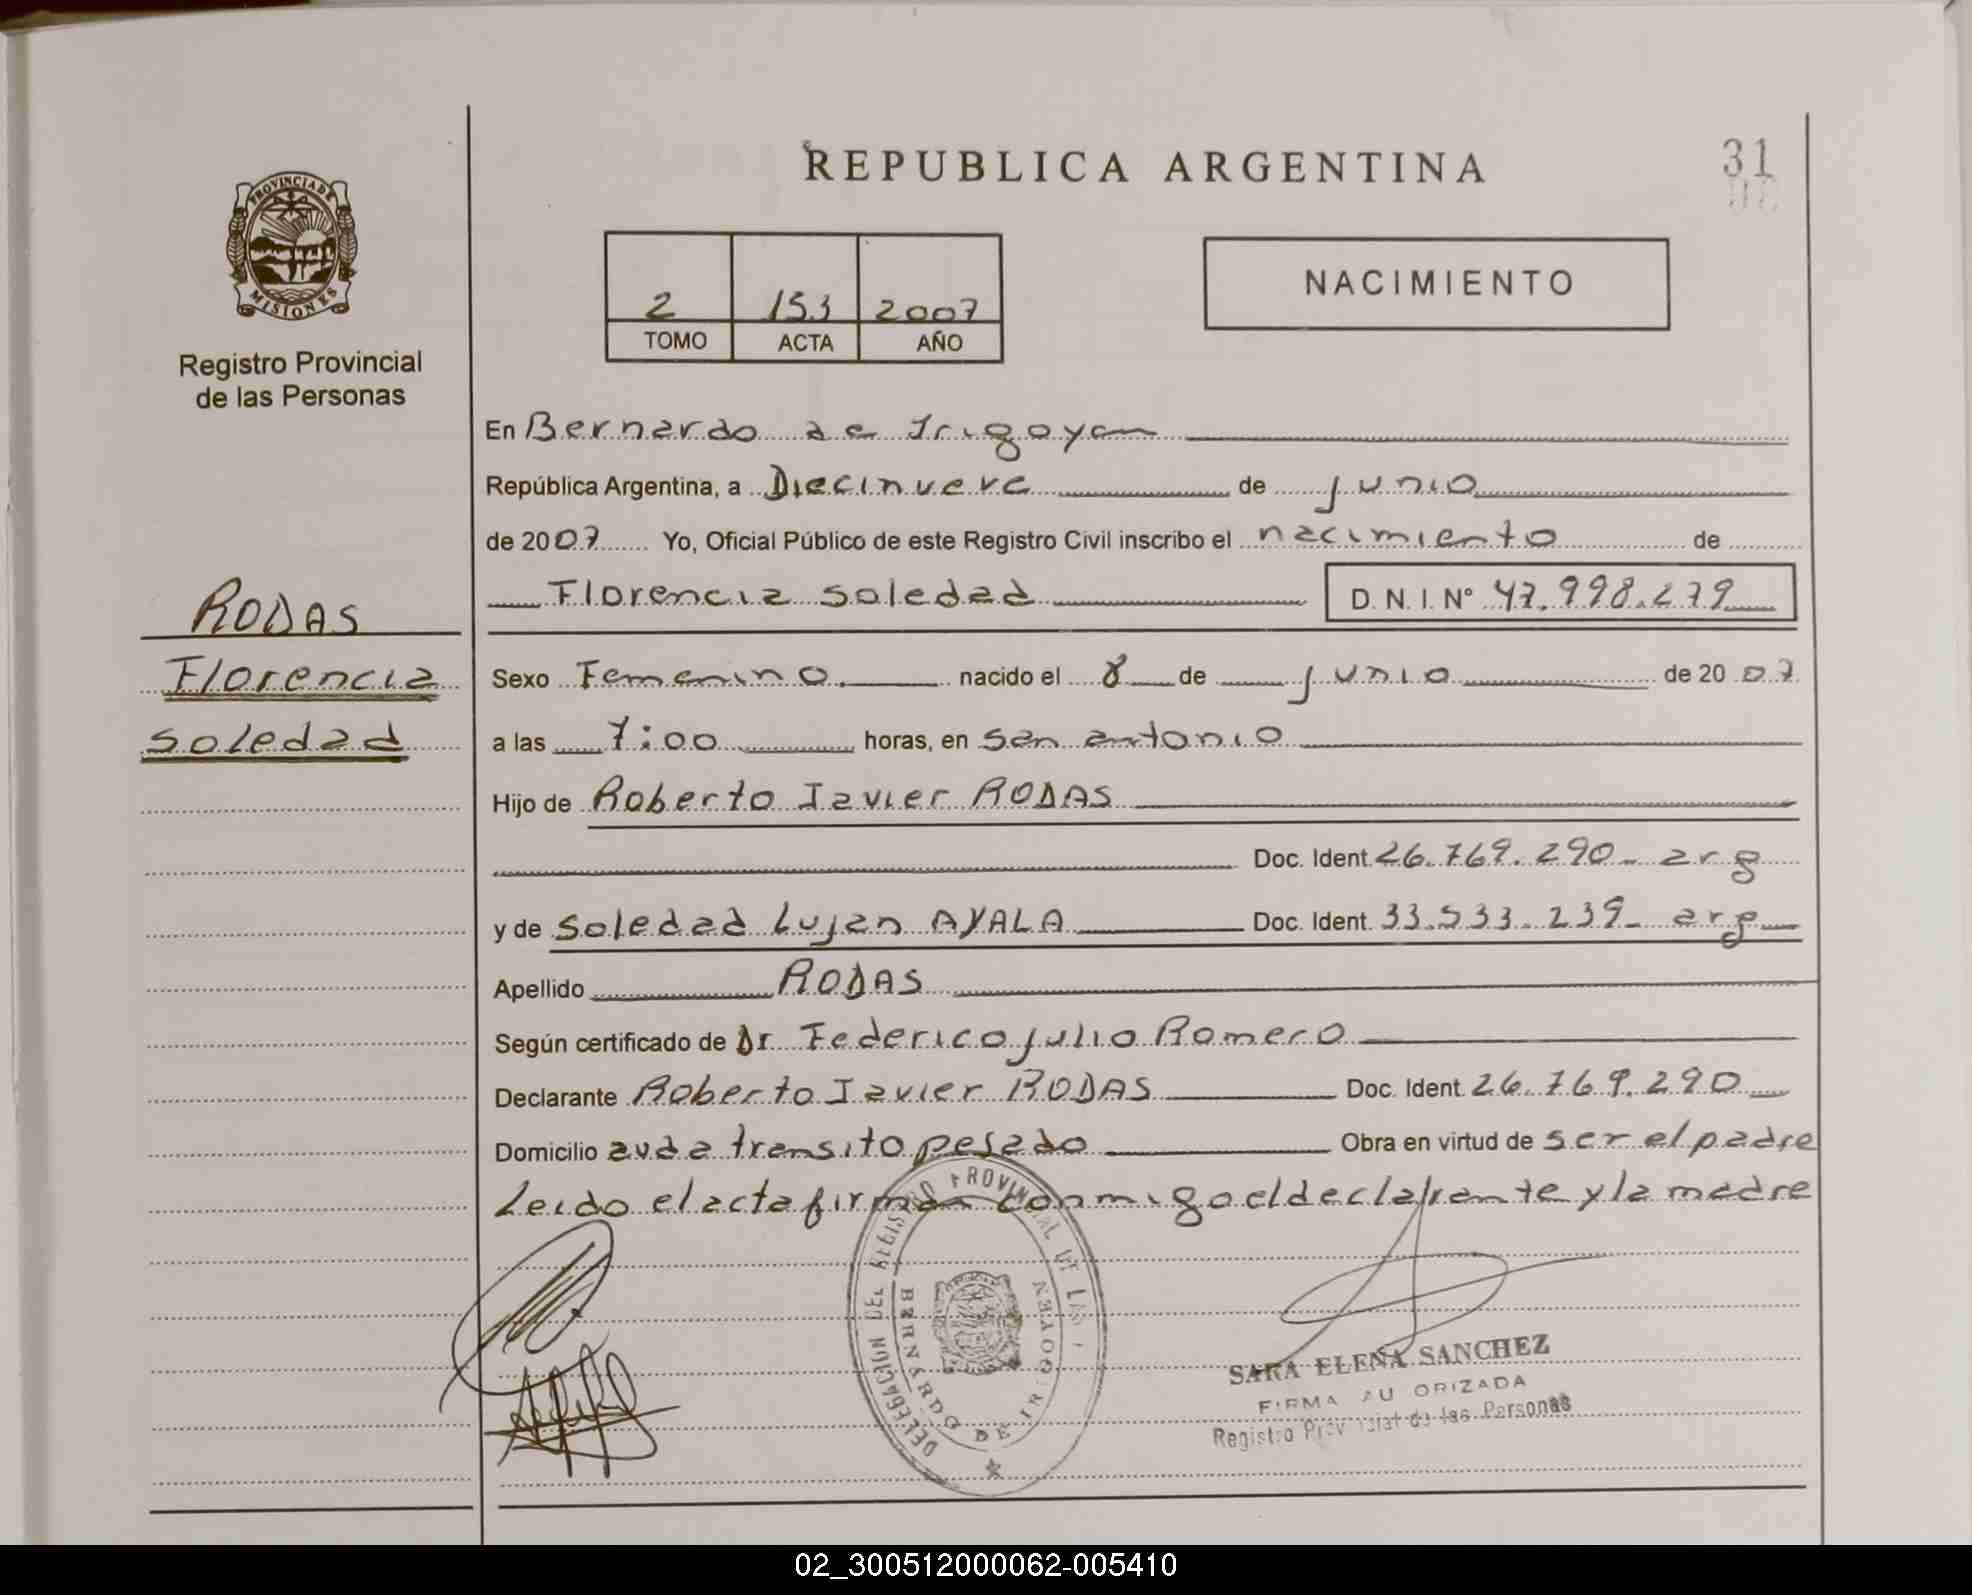 REPUBLICA ARGENTINA
31
PROVINCIA DE
MISIONES
Registro Provincial
de las Personas
2 153 2007
TOMO ACTA AÑO
NACIMIENTO
En Bernardo de Irigoyen
República Argentina, a Diecinueve de junio
de 2007 Yo, Oficial Público de este Registro Civil inscribo el nacimiento de
Florencia soledad D. N. I. Nº 47.998.279
RODAS
Florencia
soledad
Sexo Femenino nacido el 8 de junio de 2007
a las 7:00 horas, en san antonio
Hijo de Roberto Javier RODAS
Doc. Ident. 26.769.290 - arg
y de soledad Lujan AYALA Doc. Ident. 33.533.239 - arg
Apellido RODAS
Según certificado de Dr Federico julio Romero
Declarante Roberto Javier RODAS Doc. Ident. 26.769.290
Domicilio avda transito pesado Obra en virtud de ser el padre
Leido el acta firman conmigo el declarante y la madre
DELEGACION DEL REGISTRO PROVINCIAL DE LAS
BERNARDO DE IRIGOYEN
SARA ELENA SANCHEZ
FIRMA AUTORIZADA
Registro Provincial de las Personas
02_300512000062-005410